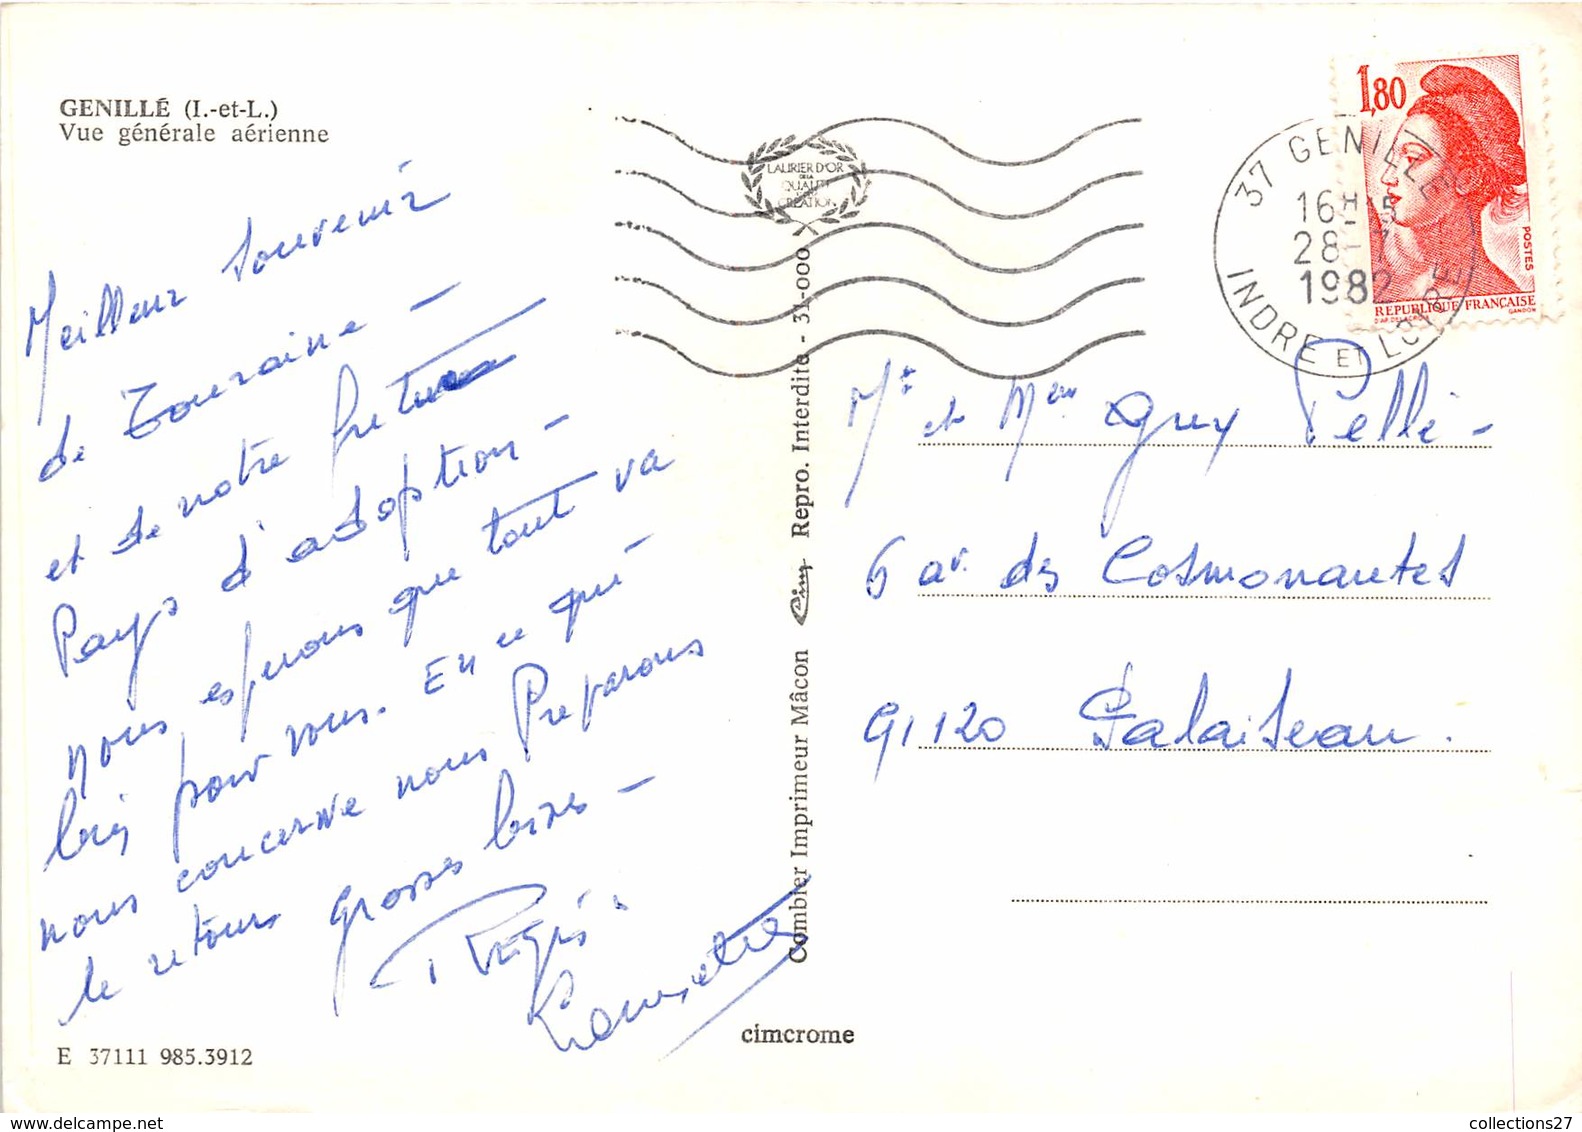 GENILLÉ (I.-et-L.)
Vue générale aérienne
Meilleur souvenir
de Touraine -
et de notre future
Pays d'adoption -
nous esperons que tout va
bien pour vous. En ce qui -
nous concerne nous Preparons
le retour grosses bises -
Régis.
E 37111 985.3912
LAURIER D'OR
DE LA
QUALITÉ
CREATION
Combier Imprimeur Mâcon Cim Repro. Interdite - 31-000
cimcrome
37 GENILLE
16H15
28-7
1982
INDRE ET LOIRE
1,80
POSTES
REPUBLIQUE FRANÇAISE
D'AP. DELACROIX GANDON
Mr et Mme Guy Pellé -
6 av. des Cosmonautes
91120 Palaiseau.
collections27